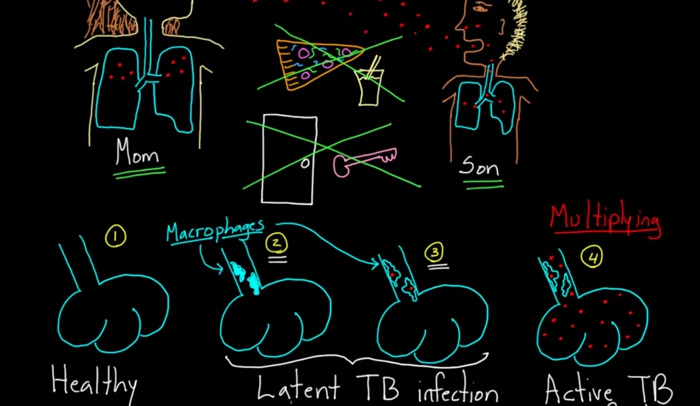 Mom
Son
Multiplying
Macrophages
1
2
3
4
Healthy
Latent TB infection
Active TB